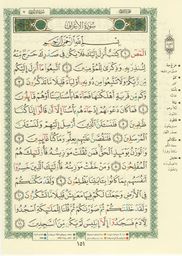 سُورَةُ الأَعْرَافِ
بِسْمِ اللَّهِ الرَّحْمَٰنِ الرَّحِيمِ
الٓمٓصٓ ١ كِتَٰبٌ أُنزِلَ إِلَيْكَ فَلَا يَكُن فِي صَدْرِكَ حَرَجٌ مِّنْهُ
لِتُنذِرَ بِهِۦ وَذِكْرَىٰ لِلْمُؤْمِنِينَ ٢ ٱتَّبِعُوا۟ مَآ أُنزِلَ إِلَيْكُم مِّن
رَّبِّكُمْ وَلَا تَتَّبِعُوا۟ مِن دُونِهِۦٓ أَوْلِيَآءَ قَلِيلًا مَّا تَذَكَّرُونَ ٣
وَكَم مِّن قَرْيَةٍ أَهْلَكْنَٰهَا فَجَآءَهَا بَأْسُنَا بَيَٰتًا أَوْ هُمْ قَآئِلُونَ ٤
فَمَا كَانَ دَعْوَىٰهُمْ إِذْ جَآءَهُم بَأْسُنَآ إِلَّآ أَن قَالُوٓا۟ إِنَّا كُنَّا
ظَٰلِمِينَ ٥ فَلَنَسْـَٔلَنَّ ٱلَّذِينَ أُرْسِلَ إِلَيْهِمْ وَلَنَسْـَٔلَنَّ
ٱلْمُرْسَلِينَ ٦ فَلَنَقُصَّنَّ عَلَيْهِم بِعِلْمٍ وَمَا كُنَّا غَآئِبِينَ ٧
وَٱلْوَزْنُ يَوْمَئِذٍ ٱلْحَقُّ فَمَن ثَقُلَتْ مَوَٰزِينُهُۥ فَأُو۟لَٰٓئِكَ هُمُ
ٱلْمُفْلِحُونَ ٨ وَمَنْ خَفَّتْ مَوَٰزِينُهُۥ فَأُو۟لَٰٓئِكَ ٱلَّذِينَ خَسِرُوٓا۟
أَنفُسَهُم بِمَا كَانُوا۟ بِـَٔايَٰتِنَا يَظْلِمُونَ ٩ وَلَقَدْ مَكَّنَّٰكُمْ
فِي ٱلْأَرْضِ وَجَعَلْنَا لَكُمْ فِيهَا مَعَٰيِشَ قَلِيلًا مَّا تَشْكُرُونَ ١٠
وَلَقَدْ خَلَقْنَٰكُمْ ثُمَّ صَوَّرْنَٰكُمْ ثُمَّ قُلْنَا لِلْمَلَٰٓئِكَةِ ٱسْجُدُوا۟
لِـَٔادَمَ فَسَجَدُوٓا۟ إِلَّآ إِبْلِيسَ لَمْ يَكُن مِّنَ ٱلسَّٰجِدِينَ ١١
١٥١